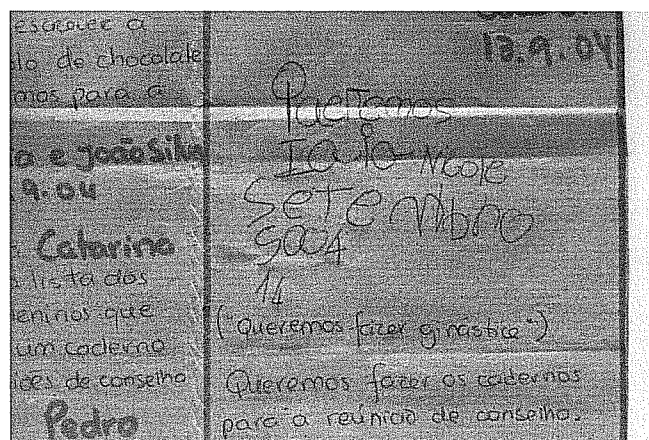 escrever a
de chocolate
mos para a
a e João Silva
9.04
Catarina
lista dos
meninos que
um caderno
de conselho
Pedro
13.9.04
Queremos
Nicole
Setembro
14
("Queremos fazer ginástica")
Queremos fazer os cadernos
para a reunião de conselho.